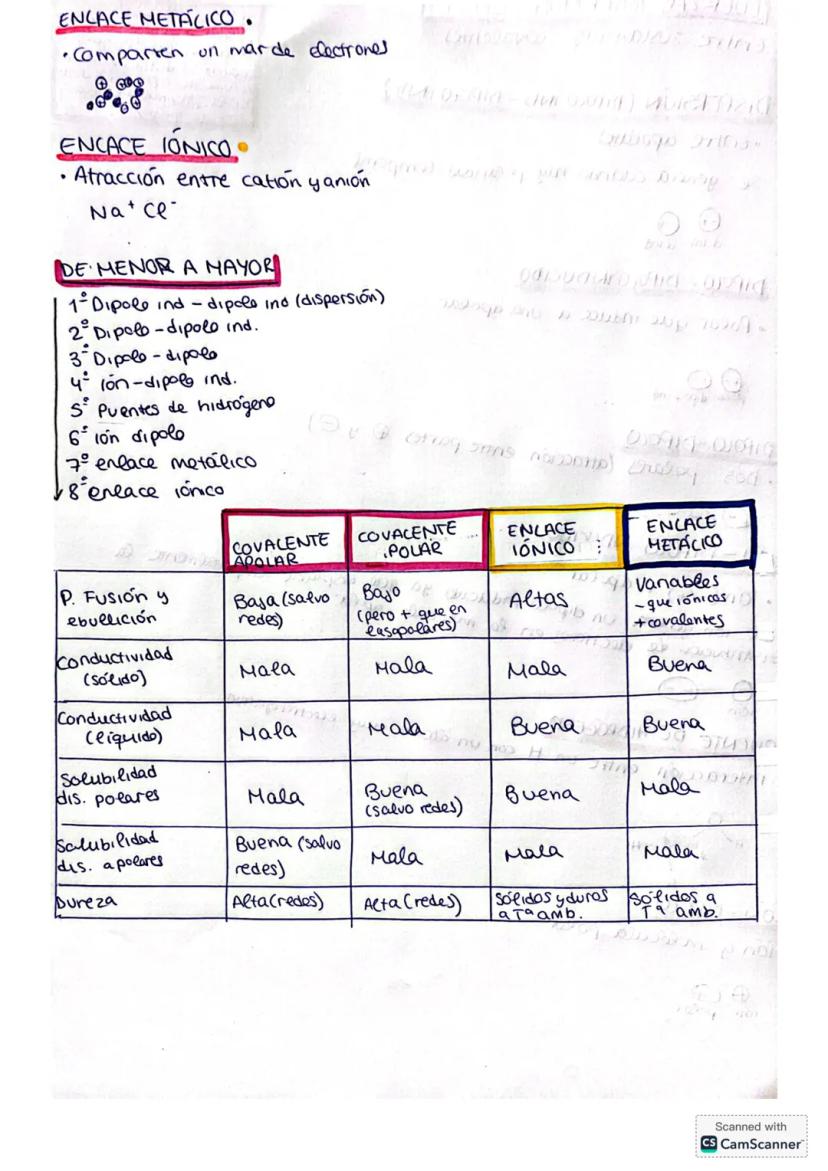 ENLACE METÁLICO.
· Comparten un mar de electrones
ENLACE IÓNICO
· Atracción entre catión y anión
Na⁺ Cl⁻
DE MENOR A MAYOR
1º Dipolo ind - dipolo ind (dispersión)
2º Dipolo - dipolo ind.
3º Dipolo - dipolo
4º Ión - dipolo ind.
5º Puentes de hidrógeno
6º ión dipolo
7º enlace metálico
8º enlace iónico
COVALENTE APOLAR
COVALENTE POLAR
ENLACE IÓNICO
ENLACE METÁLICO
P. Fusión y ebullición
Baja (salvo redes)
Bajo (pero + que en las apolares)
Altas
Variables - que iónicas + covalentes
Conductividad (sólido)
Mala
Mala
Mala
Buena
Conductividad (líquido)
Mala
Mala
Buena
Buena
Solubilidad dis. polares
Mala
Buena (salvo redes)
Buena
Mala
Salubilidad dis. apolares
Buena (salvo redes)
Mala
Mala
Mala
Dureza
Alta (redes)
Alta (redes)
Sólidos y duros a Tª amb.
Sólidos a Tª amb.
Scanned with
CS CamScanner